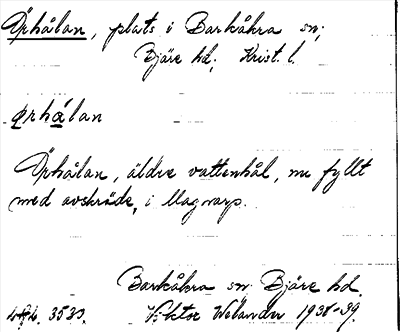 Örhålan, plats i Barkåkra sn,
Bjäre hd, Krist. l.
ørhålan
Örhålan, äldre vattenhål, nu fyllt
med avskräde, i Magnarp.
Barkåkra sn Bjäre hd.
3530. Viktor Welander 1938-39.